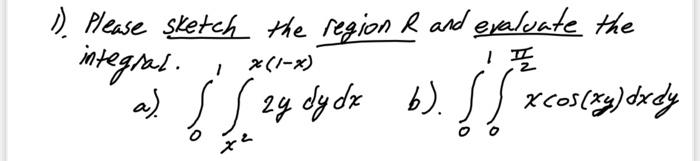 1). Please sketch the region R and evaluate the
integral.
a). ∫₀¹ ∫_{x²}^{x(1-x)} 2y dy dx b). ∫₀¹ ∫₀^{π/2} x cos(xy) dx dy